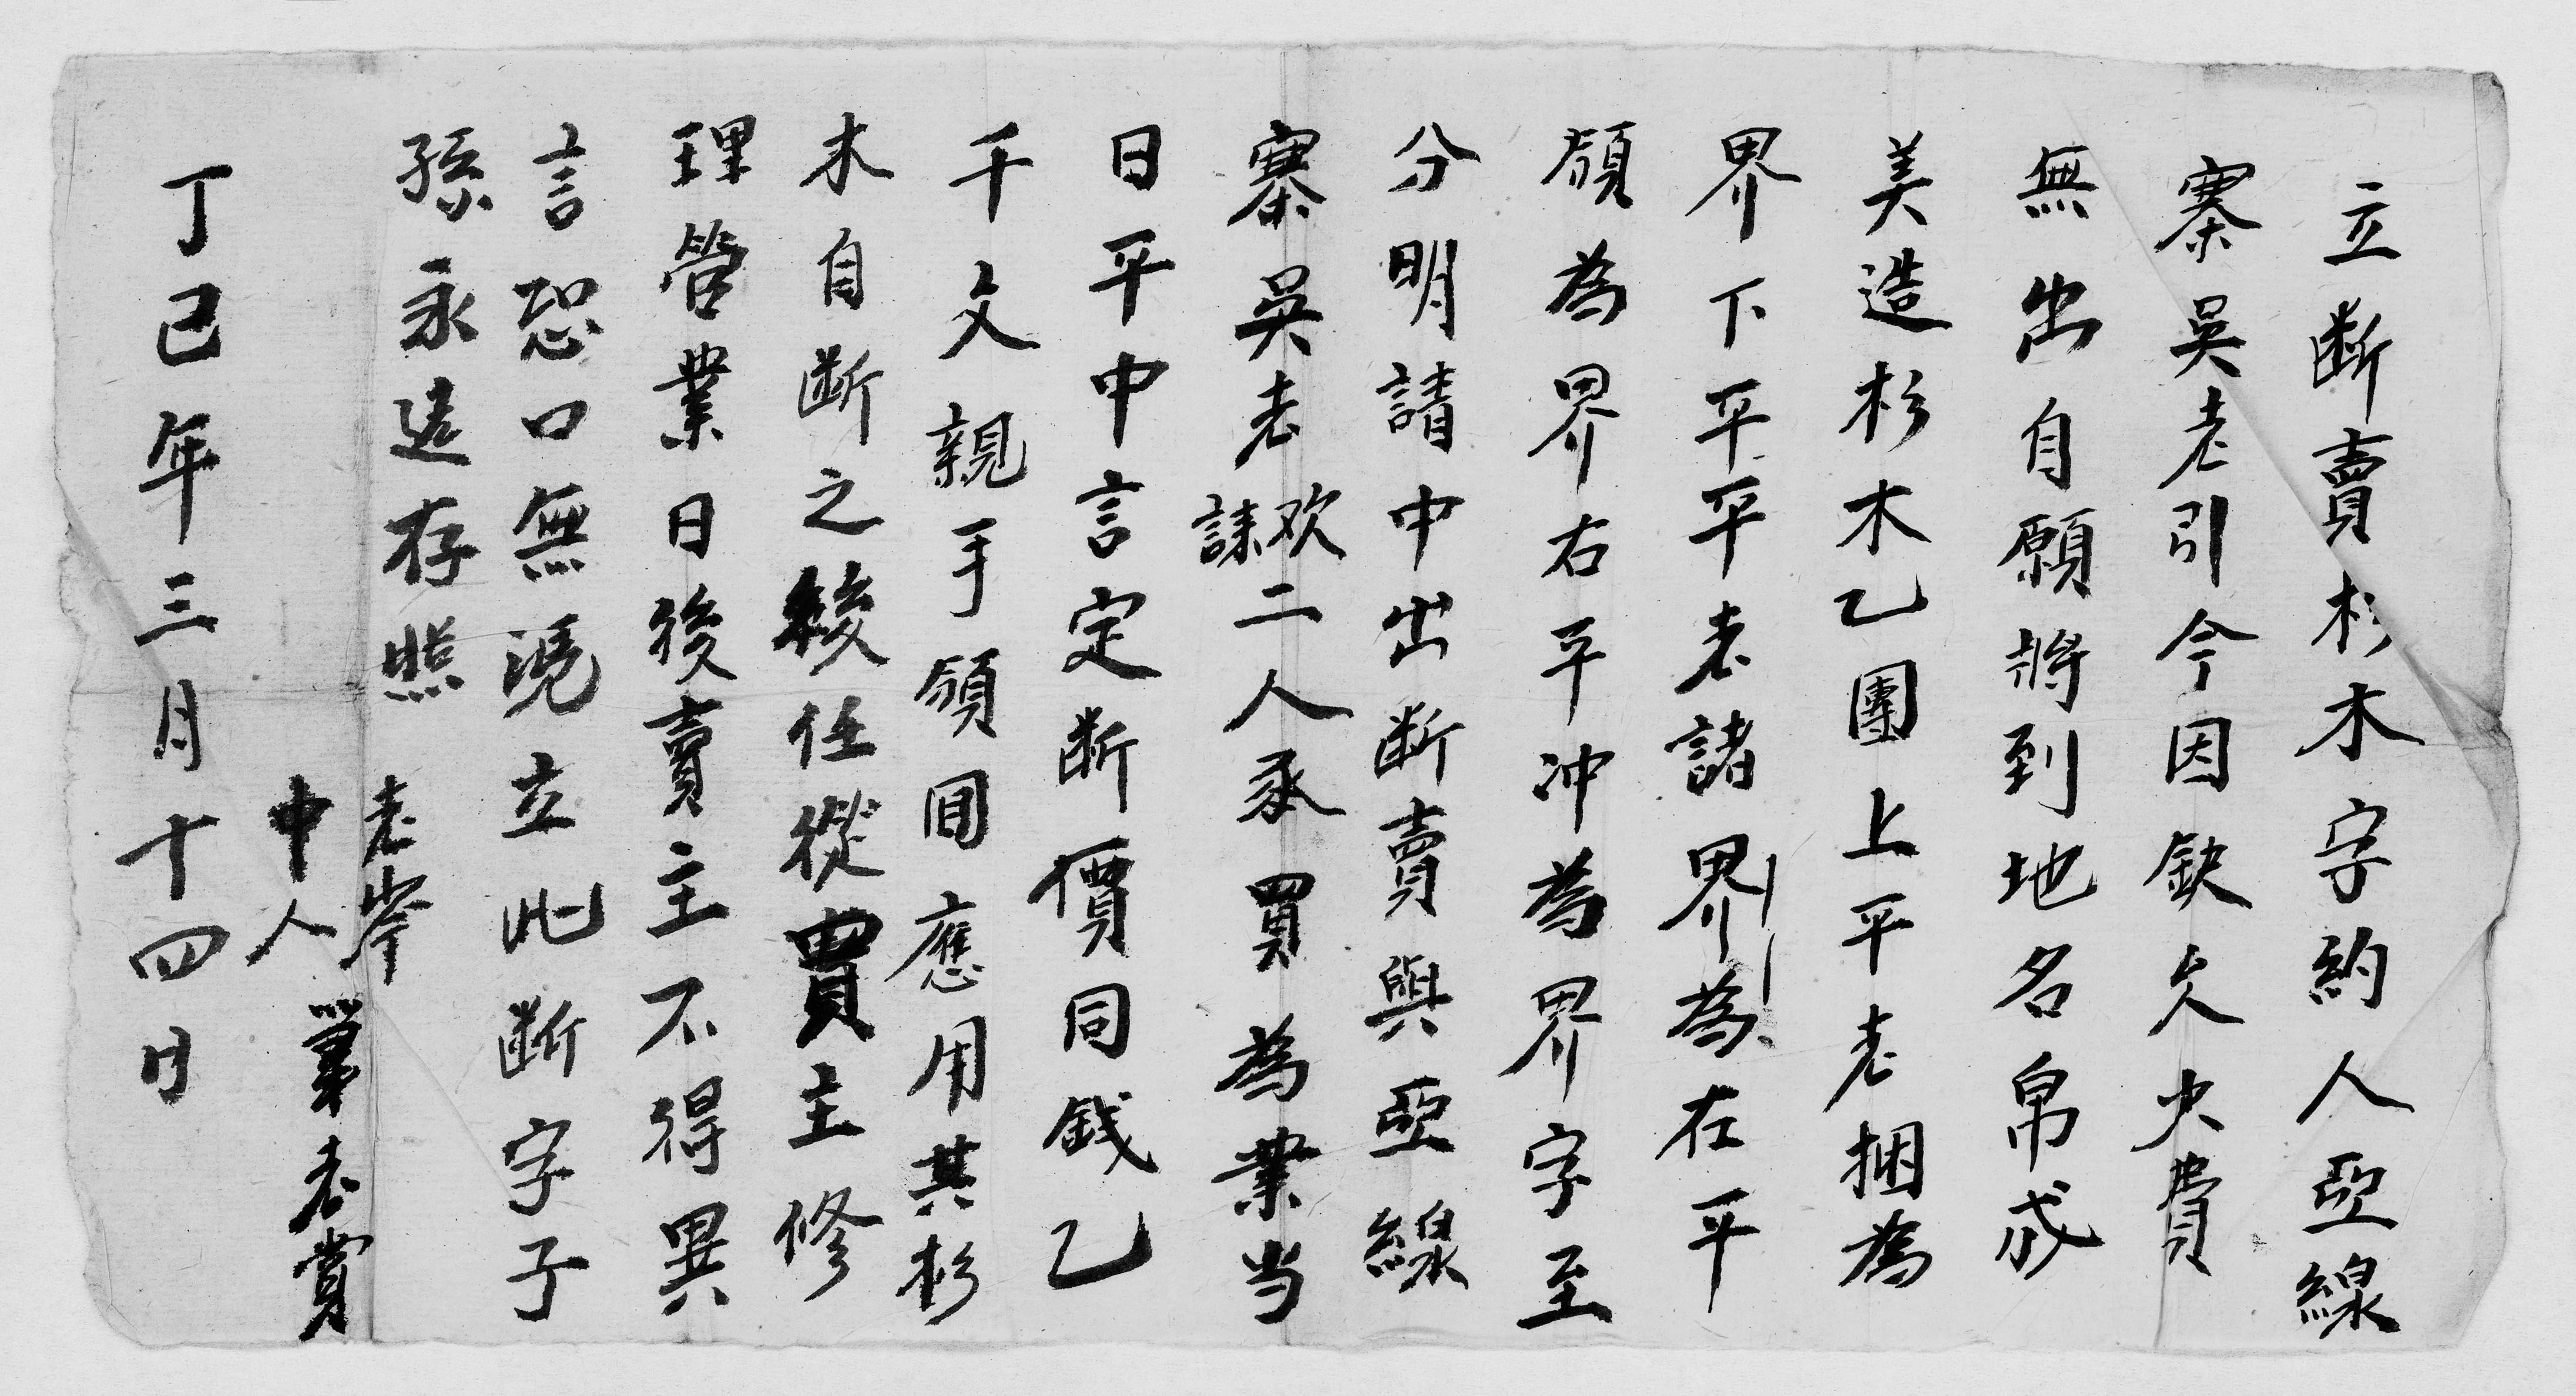 立断賣杉木字約人亞線
寨吳老引今因缺欠火費
無出自願將到地名帛成
美造杉木乙團上平老捆為
界下平平老諸界為在平
領為界右平冲為界字至
分明請中出断賣與亞線
寨吳老欢謀二人承買為業当
日平中言定断價同錢乙
千文親手領囬應用其杉
木自断之後任從買主修
理管業日後賣主不得異
言恐口無凴立此断字子
孫永遠存照
老岑
中人
筆老賞
丁已年三月十四日